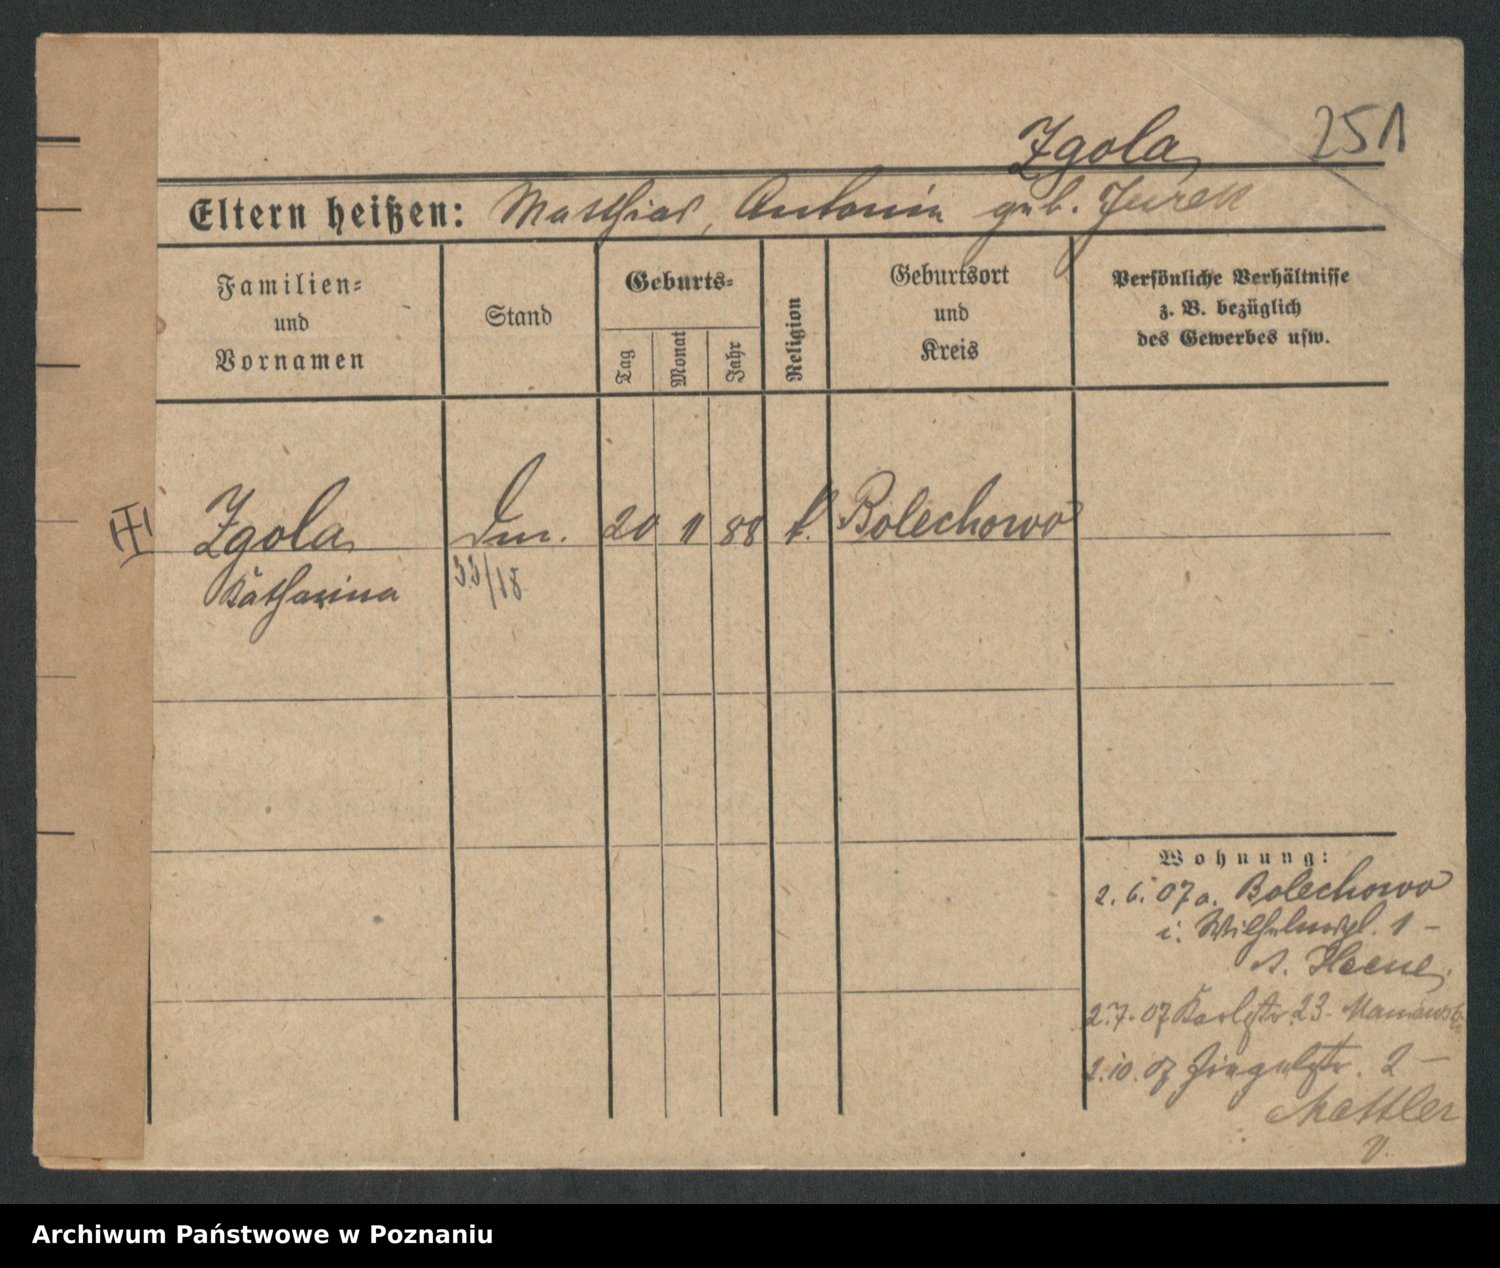 251
Zgola
Eltern heißen: Matthias, Antonia geb. Jurek
Familien-
und
Vornamen
Stand
Geburts-
Tag
Monat
Jahr
Religion
Geburtsort
und
Kreis
Persönliche Verhältnisse
z. B. bezüglich
des Gewerbes usw.
Zgola 20 11 88 k. Bolechowo
Katharina
33/18
Wohnung:
2. 6. 07 a. Bolechowo
i. Wilhelmspl. 1 -
2.7.07 Karlstr. 23.
2.10.07 2 -
Mettler
v.
Archiwum Państwowe w Poznaniu